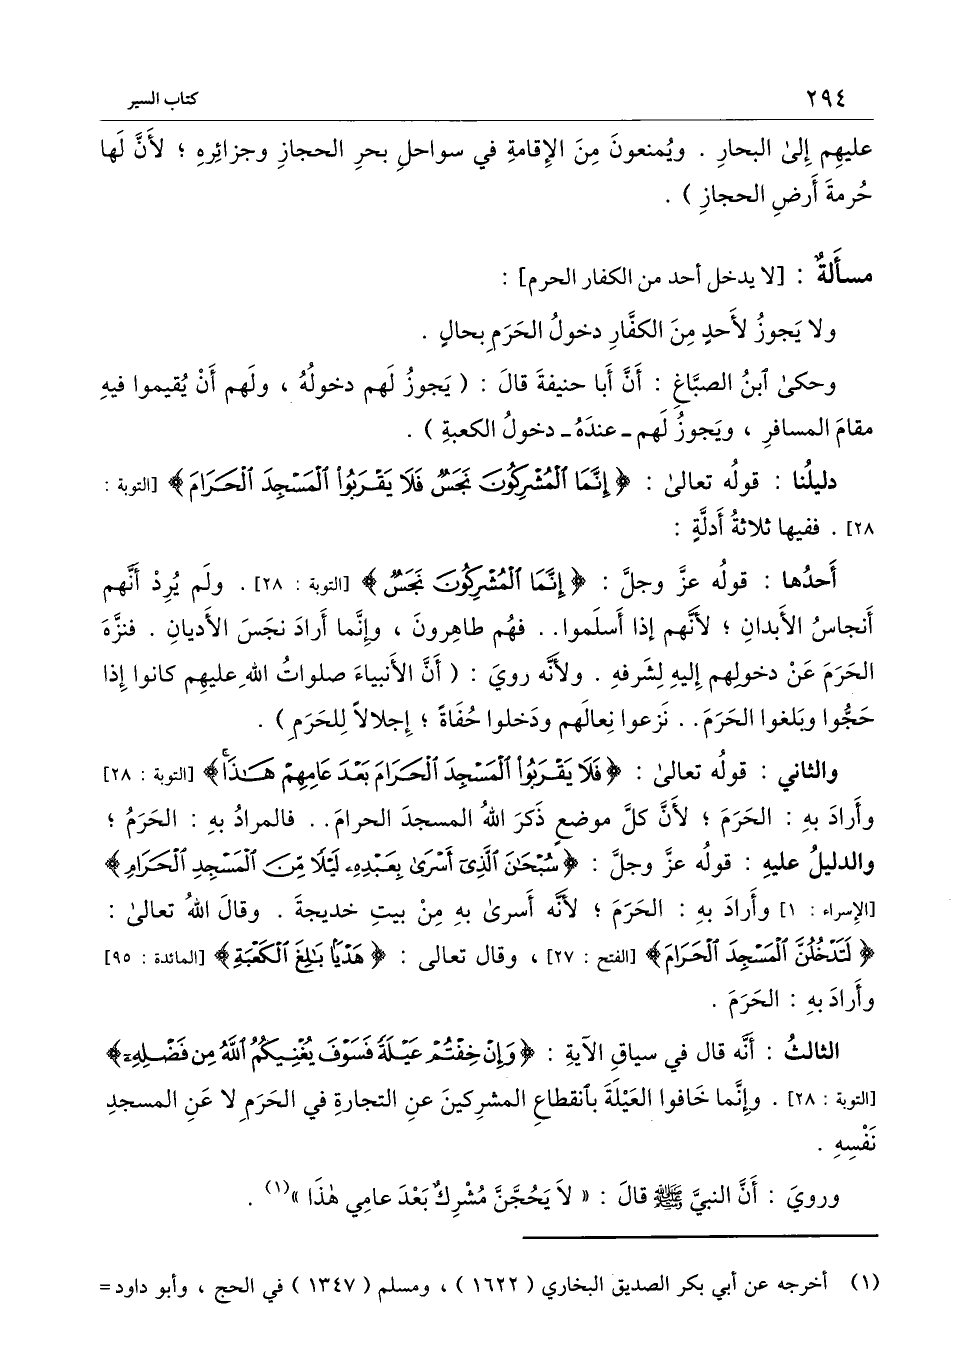 ٢٩٤ كتاب السير
عليهِم إِلىٰ البحارِ . ويُمنعونَ مِنَ الإِقامةِ في سواحلِ بحرِ الحجازِ وجزائِرهِ ؛ لأَنَّ لَها
حُرمةَ أَرضِ الحجازِ ) .
مسأَلةٌ : [لا يدخل أحد من الكفار الحرم] :
ولا يَجوزُ لأَحدٍ مِنَ الكفَّارِ دخولُ الحَرَمِ بحالٍ .
وحكىٰ ٱبنُ الصبَّاغِ : أَنَّ أَبا حنيفةَ قالَ : ( يَجوزُ لَهم دخولُهُ ، ولَهم أَنْ يُقيموا فيهِ
مقامَ المسافرِ ، ويَجوزُ لَهم ـ عندَهُ ـ دخولُ الكعبةِ ) .
دليلُنا : قولُه تعالىٰ : ﴿ إِنَّمَا ٱلْمُشْرِكُونَ نَجَسٌ فَلَا يَقْرَبُوا۟ ٱلْمَسْجِدَ ٱلْحَرَامَ ﴾ [التوبة :
٢٨] . ففيها ثلاثةُ أَدلَّةٍ :
أَحدُها : قولُه عزَّ وجلَّ : ﴿ إِنَّمَا ٱلْمُشْرِكُونَ نَجَسٌ ﴾ [التوبة : ٢٨] . ولَم يُرِدْ أَنَّهم
أَنجاسُ الأَبدانِ ؛ لأَنَّهم إِذا أَسلَموا.. فهُم طاهِرونَ ، وإِنَّما أَرادَ نجَسَ الأَديانِ . فنزَّهَ
الحَرَمَ عَنْ دخولِهم إِليهِ لِشَرفهِ . ولأَنَّه رويَ : ( أَنَّ الأَنبياءَ صلواتُ اللهِ عليهِم كانوا إِذا
حَجُّوا وبَلغوا الحَرَمَ.. نَزعوا نِعالَهم ودَخلوا حُفَاةً ؛ إِجلالاً لِلحَرَمِ ) .
والثاني : قولُه تعالىٰ : ﴿ فَلَا يَقْرَبُوا۟ ٱلْمَسْجِدَ ٱلْحَرَامَ بَعْدَ عَامِهِمْ هَـٰذَا ۚ ﴾ [التوبة : ٢٨]
وأَرادَ بهِ : الحَرَمَ ؛ لأَنَّ كلَّ موضعٍ ذَكرَ اللهُ المسجدَ الحرامَ.. فالمرادُ بهِ : الحَرَمُ ؛
والدليلُ عليهِ : قولُه عزَّ وجلَّ : ﴿ سُبْحَـٰنَ ٱلَّذِىٓ أَسْرَىٰ بِعَبْدِهِۦ لَيْلًا مِّنَ ٱلْمَسْجِدِ ٱلْحَرَامِ ﴾
[الإسراء : ١] وأَرادَ بهِ : الحَرَمَ ؛ لأَنَّه أَسرىٰ بهِ مِنْ بيتِ خديجةَ . وقالَ اللهُ تعالىٰ :
﴿ لَتَدْخُلُنَّ ٱلْمَسْجِدَ ٱلْحَرَامَ ﴾ [الفتح : ٢٧] ، وقال تعالى : ﴿ هَدْيًۢا بَـٰلِغَ ٱلْكَعْبَةِ ﴾ [المائدة : ٩٥]
وأَرادَ بهِ : الحَرَمَ .
الثالثُ : أَنَّه قال في سياقِ الآيةِ : ﴿ وَإِنْ خِفْتُمْ عَيْلَةً فَسَوْفَ يُغْنِيكُمُ ٱللَّهُ مِن فَضْلِهِۦٓ ﴾
[التوبة : ٢٨] . وإِنَّما خَافوا العَيْلَةَ بٱنقطاعِ المشركينَ عنِ التجارةِ في الحَرَمِ لا عَنِ المسجدِ
نَفْسِهِ .
ورويَ : أَنَّ النبيَّ ﷺ قالَ : « لاَ يَحُجَّنَّ مُشْرِكٌ بَعْدَ عامِي هٰذَا »(١) .
(١) أخرجه عن أبي بكر الصديق البخاري ( ١٦٢٢ ) ، ومسلم ( ١٣٤٧ ) في الحج ، وأبو داود=